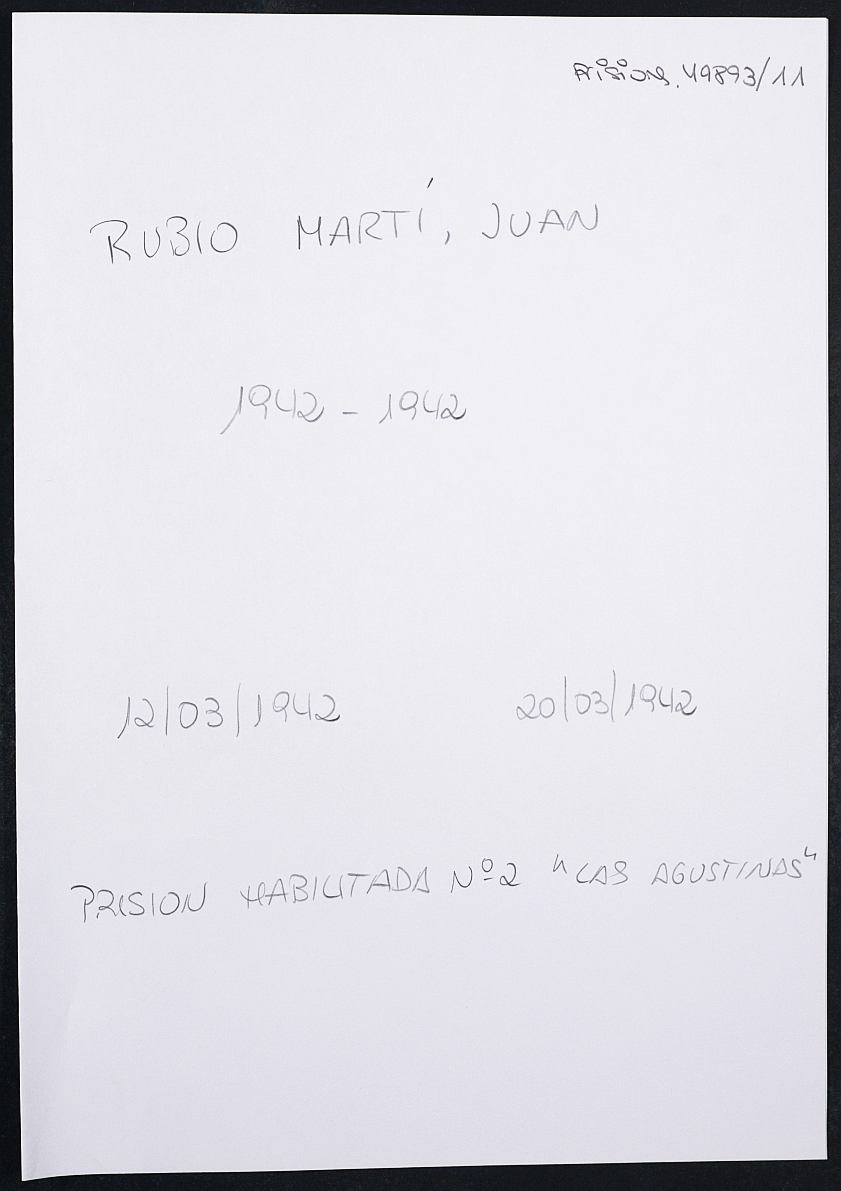 Prisions. 49893/11
RUBIO MARTÍ, JUAN
1942 - 1942
12/03/1942 20/03/1942
PRISION HABILITADA Nº 2 "LAS AGUSTINAS"